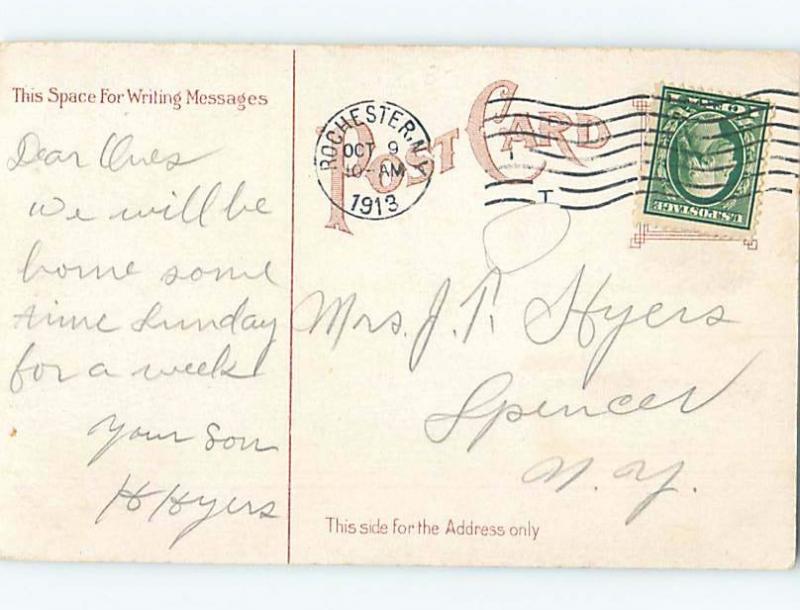 This Space For Writing Messages
Dear Ones
we will be
home some
time Sunday
for a week
your son
H Hyers
POST CARD
ROCHESTER, N.Y.
OCT 9
10-AM
1913
U.S. POSTAGE
Mrs. J. P. Hyers
Spencer
N. Y.
This side for the Address only